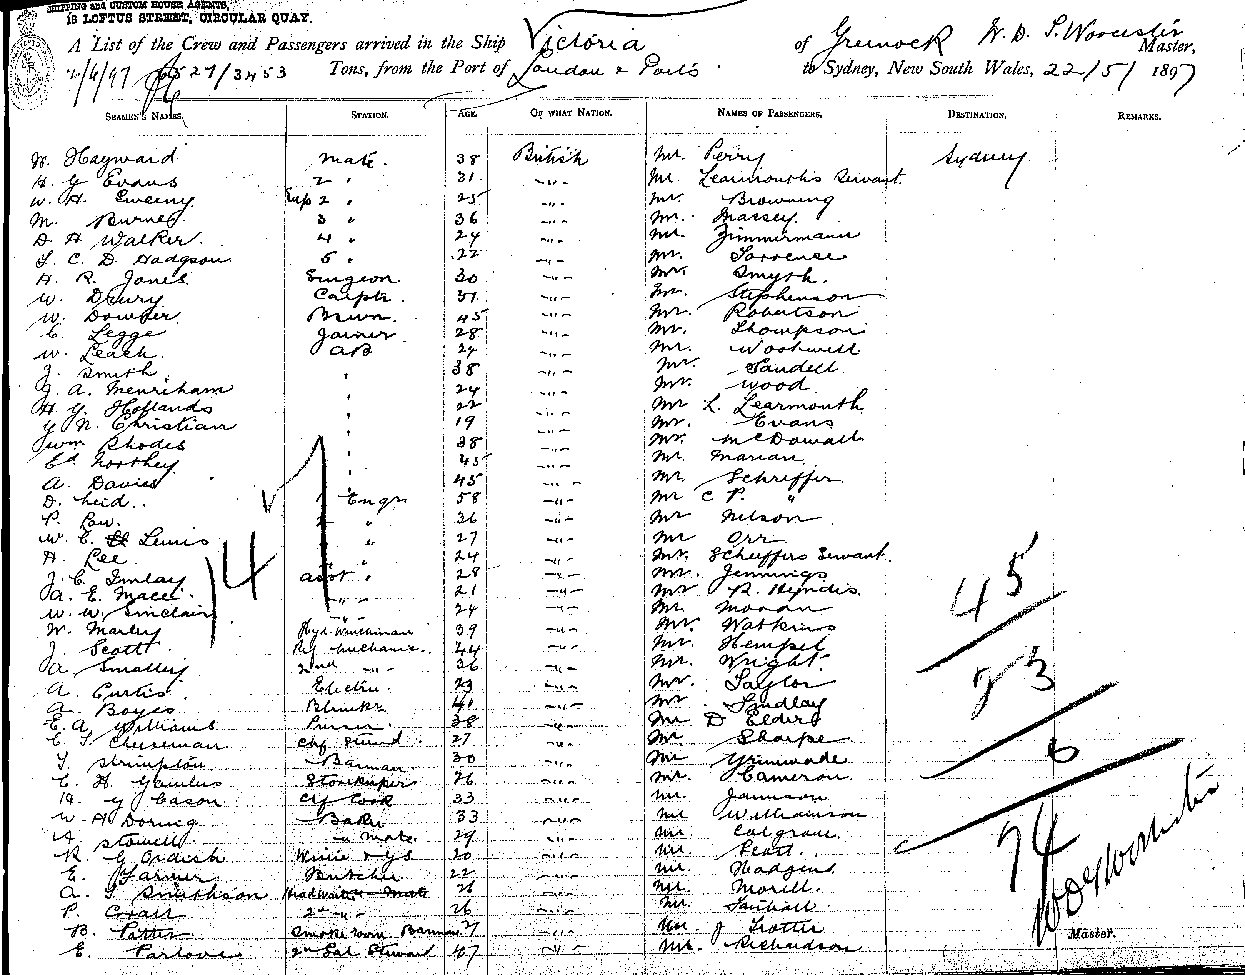 SHIPPING AND CUSTOM HOUSE AGENTS,
15 LOFTUS STREET, CIRCULAR QUAY.
A List of the Crew and Passengers arrived in the Ship Victoria of Greenock W. D. G. Worcester Master,
6527/3453 Tons, from the Port of London & Ports to Sydney, New South Wales, 22/5/ 1897
SEAMEN'S NAMES. STATION. AGE. OF WHAT NATION. NAMES OF PASSENGERS. DESTINATION. REMARKS.
W. Hayward Mate. 38 British Mr. Perry Sydney
H. G Evans 2 " 31 -"- Mr Learmouth's Servant
W. H. Sweeny Sup 2 " 25 -"- Mr. Browning
M. Burnes 3 " 36 -"- Mr. Massey
D H Walker 4 " 24 -"- Mr Zimmermann
C. D. Hodgson 5 " 22 -"- Mr.
H. R. Jones Surgeon 30 -"- Mr Smyth.
W. Drury Carptr. 31 -"- Mr. Stephenson
W. 45 -"- Mr. Robertson
C. Legge Joiner 28 -"- Mr. Thompson
W. Leach AB 24 -"- Mr.
J. Smith " 38 -"- Mr. Sandell
J. A. " 24 -"- Mr. Wood
H. G. Hollands " 22 -"- Mr L. Learmouth
G N. Christian " 19 -"- Mr. Evans
Wm Rhodes " 38 -"- Mr. McDowall
Ed. Northey " 45 -"- Mr. Marian
A. Davies " 45 -"- Mr. Schreffer
D. Reid. 1 Engr 58 -"- Mr C P. "
P. 2 " 36 -"- Mr Nilson
W. E. Lewis " 27 -"- Mr Orr
H. Lee " 24 -"- Mr. Scheffers Servant
J. C. Imlay asst " 28 -"- Mr. Jennings
A. E. Macei " 21 -"- Mr R. Hyndes
W. W. Sinclair " 24 -"- Mr. Moran
W. Marley Hyd. Winchman 39 -"- Mr. Watkins
J. Scott Ref. Mechanic 44 -"- Mr. Hempel
A Smalley 2nd " 36 -"- Mr. Wright.
A. Curtis Electrn. 23 -"- Mr. Taylor
A Boyes Plumber 41 -"- Mr Lindlay
E. A. Williams Purser 38 -"- Mr D Elders
C. Cheeseman Chf Stewd 27 -"- Mr Sharpe
Strimpton Barman 30 -"- Mr Grimwade
C. H. Storekeeper 26 -"- Mr. Cameron
H. G Cason Chf Cook 33 -"- Mr Jamison
W H Doring Baker 33 -"- Mr Williamson
A Stowell " Mate 29 -"- Mr Colgrave
R G Ordish 20 -"- Mr Scott.
E. Farmer Butcher 22 -"- Mr Hodgens
A. Smithson 26 -"- Mr Morell.
P. 2nd " 26 -"- Mr
B. Smoke room Barman 27 -"- Mr J Trotter
E. 2nd Sal Steward 47 -"- Mr. Richardson
14
45
23
6
74
W D G Worcester
Master.